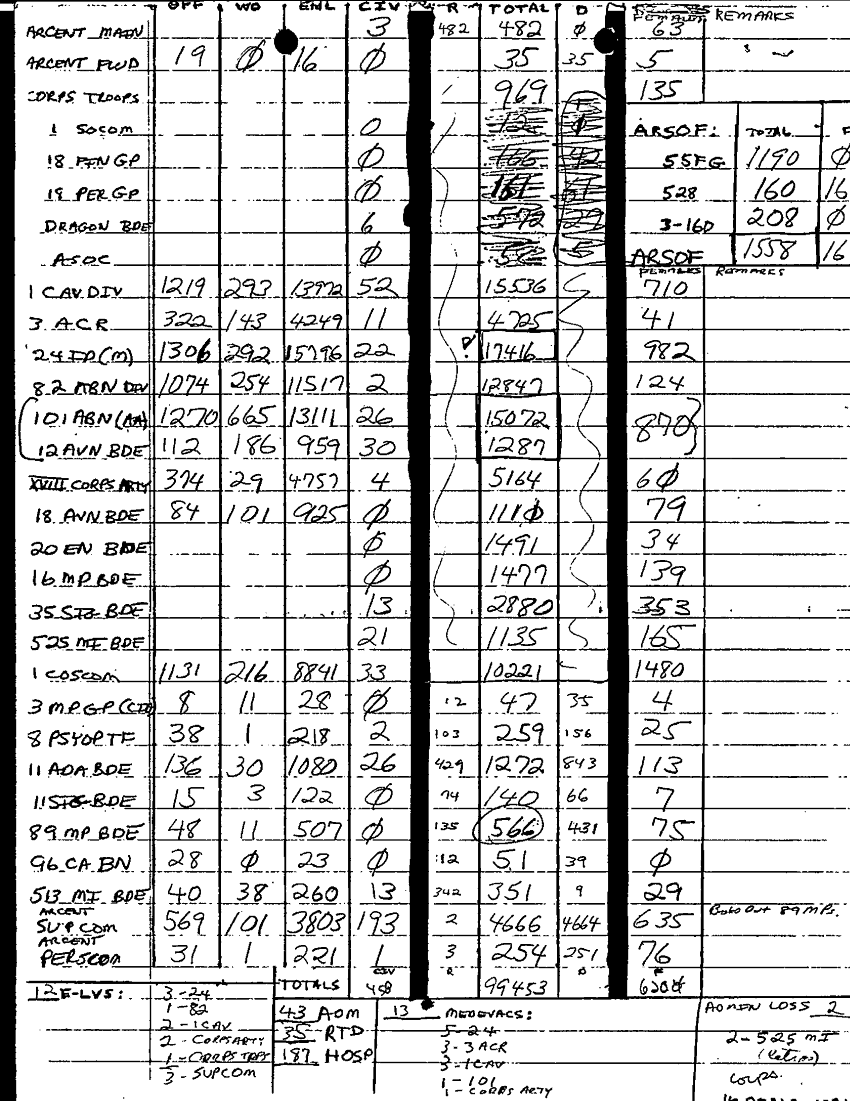 OFF WO ENL CIV R TOTAL D REMARKS
ARCENT MAIN 3 482 482 Ø 63
ARCENT FWD 19 Ø 16 Ø 35 35 5
CORPS TROOPS 969 135
1 SOCOM 0 ARSOF: TOTAL F
18 FIN GP Ø 166 42 55FG 1190 Ø
19 PER GP Ø 161 528 160 16
DRAGON BDE 6 572 29 3-160 208 Ø
ASOC Ø ARSOF 1558 16
FEMALES REMARKS
1 CAV DIV 1219 293 13972 52 15536 710
3 ACR 322 143 4249 11 4725 41
24 ID(M) 1306 292 15796 22 17416 982
82 ABN DIV 1074 254 11517 2 12847 124
101 ABN(AA) 1270 665 13111 26 15072 870
12 AVN BDE 112 186 959 30 1287
XVIII CORPS ARTY 374 29 4757 4 5164 6Ø
18 AVN BDE 84 101 925 Ø 111Ø 79
20 EN BDE Ø 1491 34
16 MP BDE Ø 1477 139
35 SIG BDE 13 2880 353
525 MI BDE 21 1135 165
1 COSCOM 1131 216 8841 33 10221 1480
3 MP GP (CID) 8 11 28 Ø 12 47 35 4
8 PSYOP TF 38 1 218 2 103 259 156 25
11 ADA BDE 136 30 1080 26 429 1272 843 113
11 SIG BDE 15 3 122 Ø 74 140 66 7
89 MP BDE 48 11 507 Ø 135 566 431 75
96 CA BN 28 Ø 23 Ø 12 51 39 Ø
513 MI BDE 40 38 260 13 342 351 9 29
ARCENT
SUPCOM 569 101 3803 193 2 4666 4664 635 89 MPs.
ARCENT
PERSCOM 31 1 221 1 3 254 251 76
CIV R D F
12 E-LVS: 3-24 TOTALS 458 99453
1-82 43 AOM 13 MEDEVACS: ADMIN LOSS 2
2-1CAV 35 RTD 5-24 2-525 MI
2-CORPS ARTY 187 HOSP 3-3 ACR
1-CORPS TRPS 3-1CAV
3-SUPCOM 1-101
1-CORPS ARTY